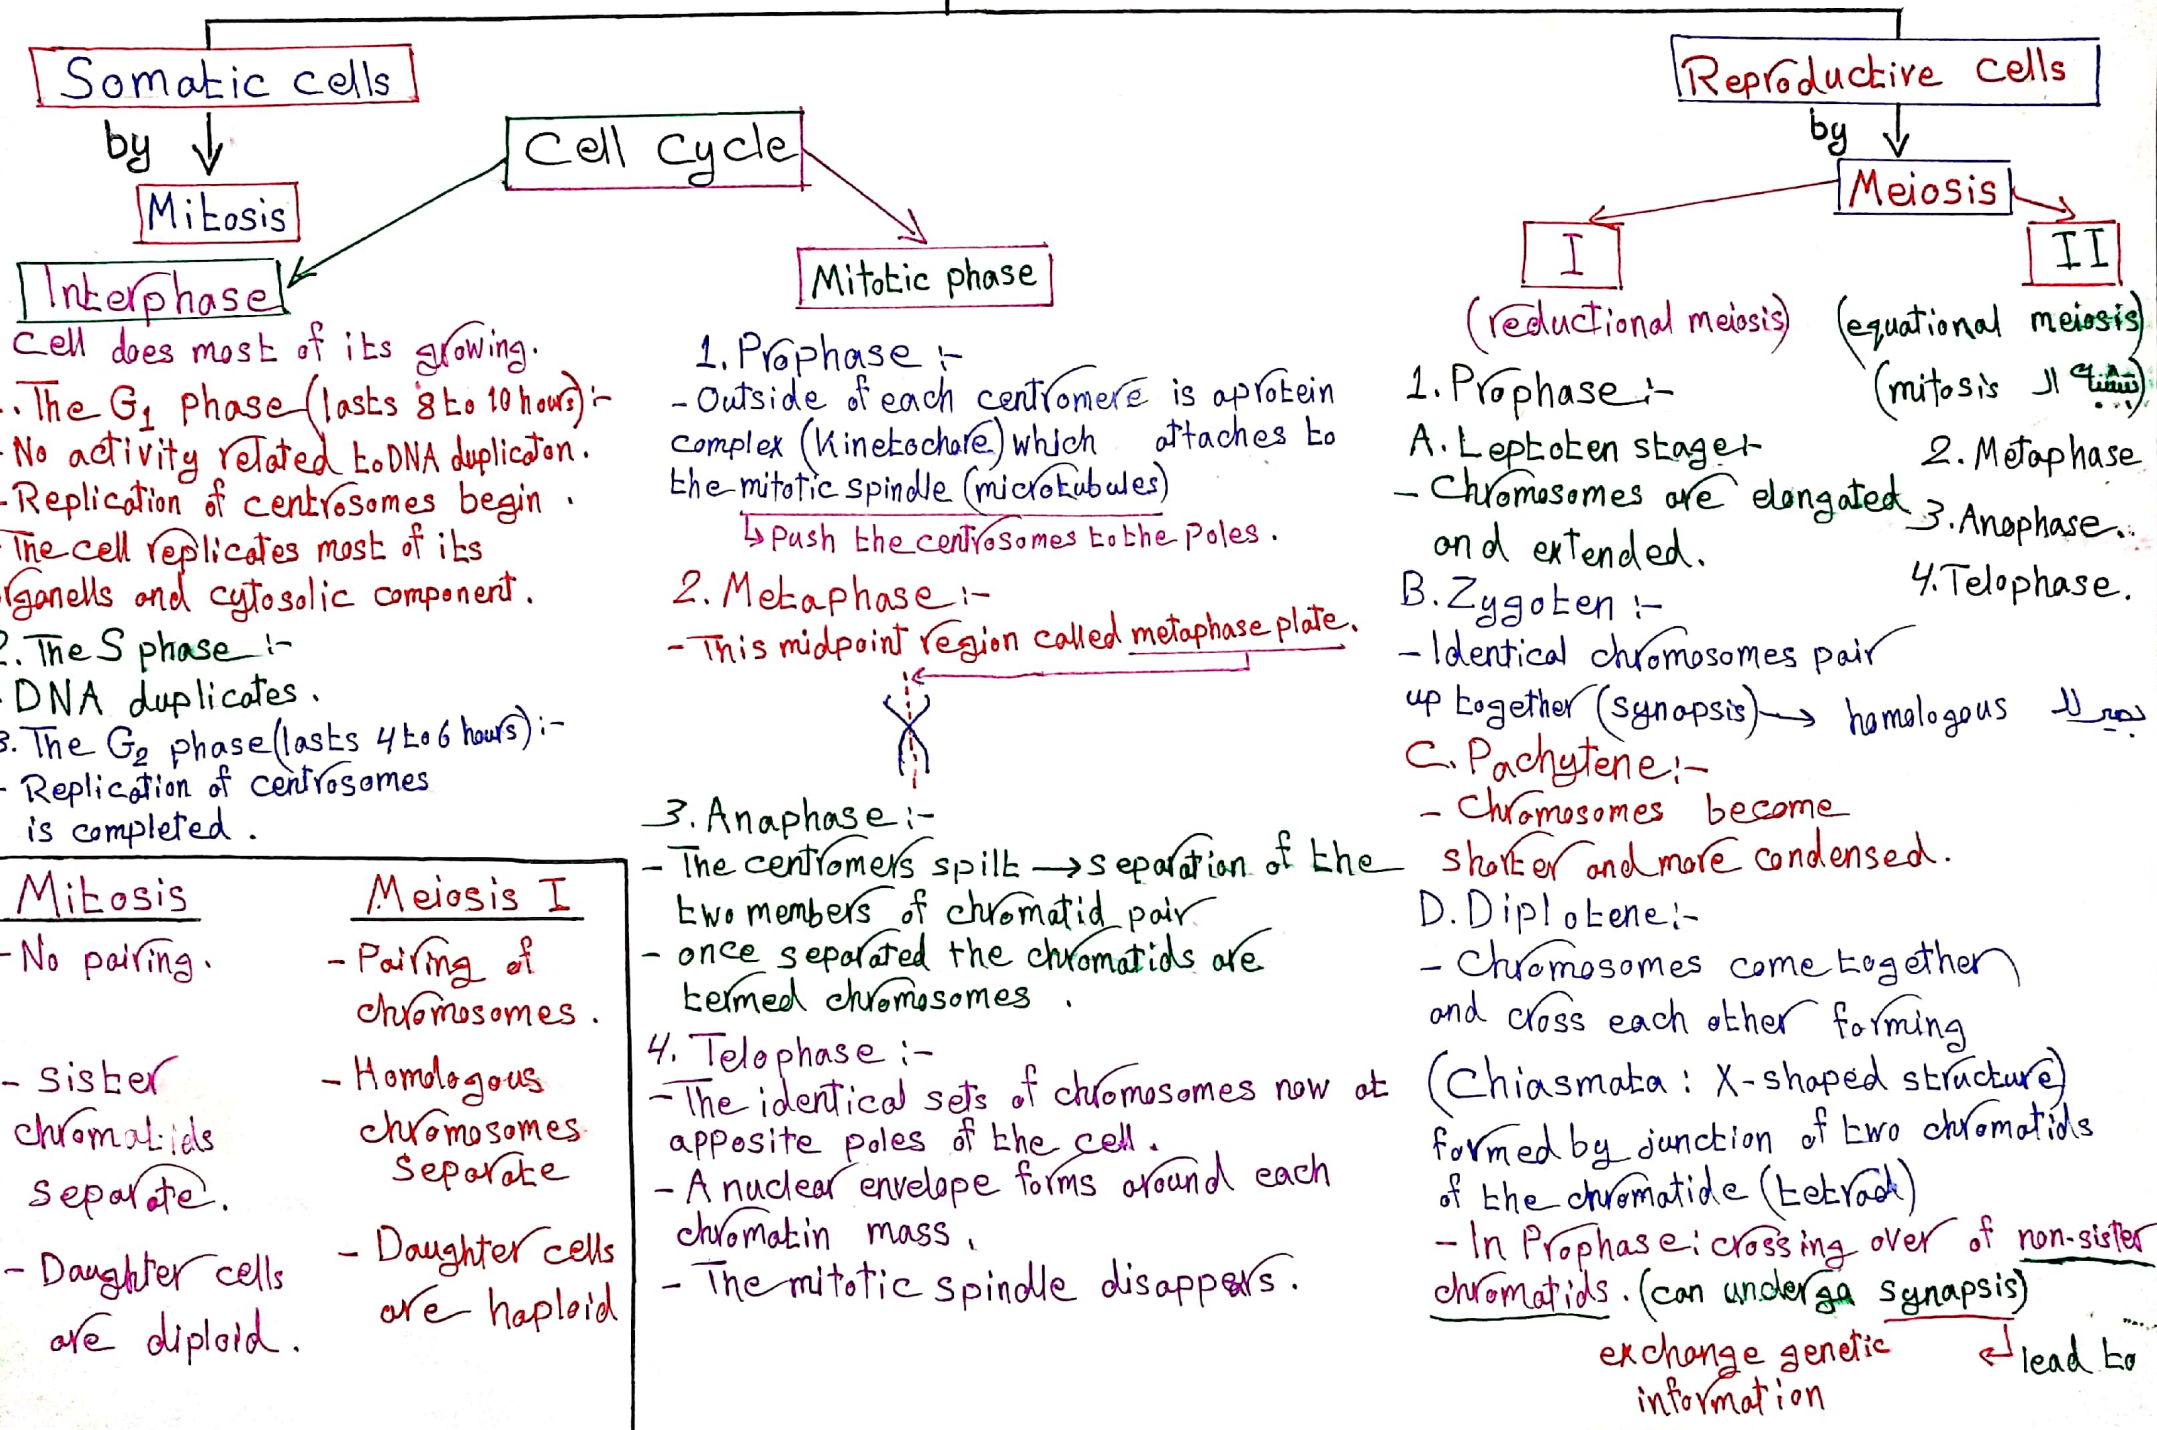 Somatic cells
by
Mitosis
Cell Cycle
Interphase
Cell does most of its growing.
. The G1 phase (lasts 8 to 10 hours) :-
- No activity related to DNA duplicaton.
- Replication of centrosomes begin .
The cell replicates most of its
rganells and cytosolic component .
2. The S phase :-
DNA duplicates .
3. The G2 phase (lasts 4 to 6 hours) :-
- Replication of centrosomes
is completed .
Mitosis
- No pairing .
- sister
chromatids
separate .
- Daughter cells
are diploid .
Meiosis I
- Pairing of
chromosomes .
- Homologous
chromosomes
separate
- Daughter cells
are haploid
Mitotic phase
1. Prophase :-
- Outside of each centromere is aprotein
complex (Kinetochore) which attaches to
the mitotic spindle (microtubules)
↳ Push the centrosomes to the Poles .
2. Metaphase :-
- This midpoint region called metaphase plate .
3. Anaphase :-
- The centromers spilt → separation of the
two members of chromatid pair
- once separated the chromatids are
termed chromosomes .
4. Telophase :-
- The identical sets of chromosomes now at
apposite poles of the cell .
- A nuclear envelope forms around each
chromatin mass .
- The mitotic spindle disappers .
Reproductive cells
by
Meiosis
I
(reductional meiosis)
1. Prophase :-
A. Leptoten stage :-
- Chromosomes are elongated
and extended .
B. Zygoten :-
- Identical chromosomes pair
up together (synapsis) → homologous
C. Pachytene :-
- Chromosomes become
shorter and more condensed .
D. Diplotene :-
- Chromosomes come together
and cross each other forming
(Chiasmata : X-shaped structure)
formed by junction of two chromatids
of the chromatide (tetrad)
- In Prophase : crossing over of non-sister
chromatids . (can underga synapsis)
lead to
exchange genetic
information
II
(equational meiosis)
(mitosis الـ)
2. Metaphase
3. Anaphase .
4. Telophase .